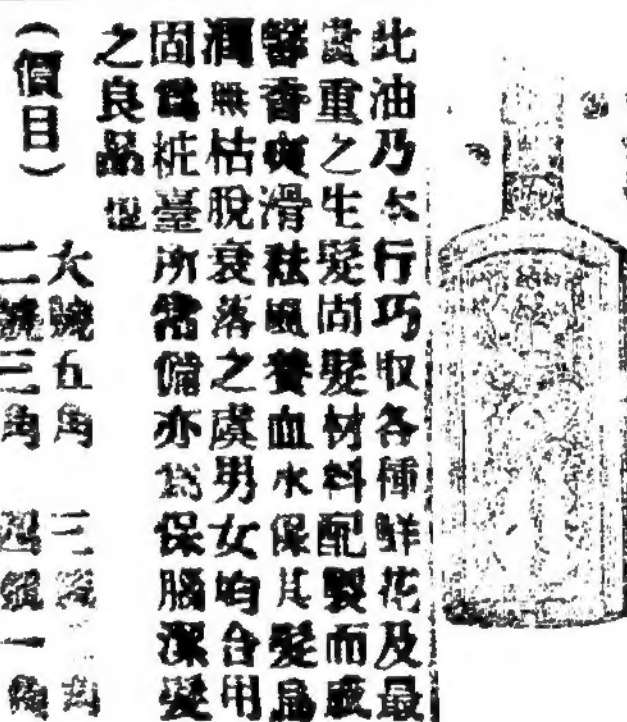 此油乃本行巧取各種鮮花及最
貴重之生髮固髮材料配製而成
馨香爽滑祛風養血永保其髮烏
潤無枯脫衰落之虞男女均合用
固爲粧臺所常備亦爲保腦潔髮
之良品也
（價目） 大號五角 三號 角
二號三角 四號一角